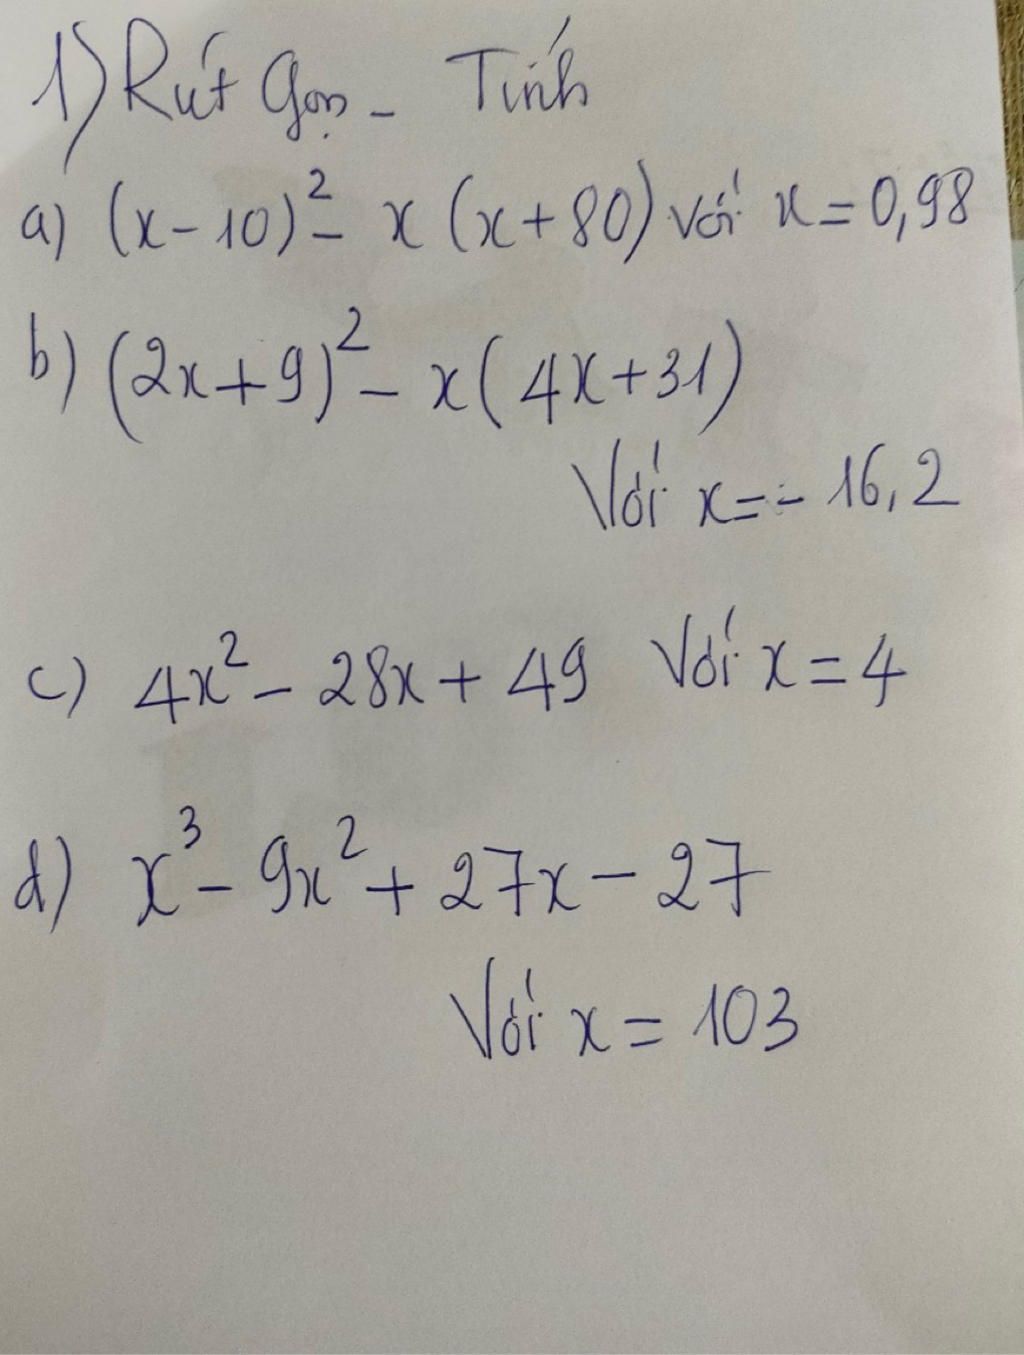 1) Rút Gọn - Tính
a) (x-10)² - x (x+80) với x=0,98
b) (2x+9)² - x(4x+31)
Với x=-16,2
c) 4x² - 28x + 49 Với x=4
d) x³ - 9x² + 27x - 27
Với x = 103